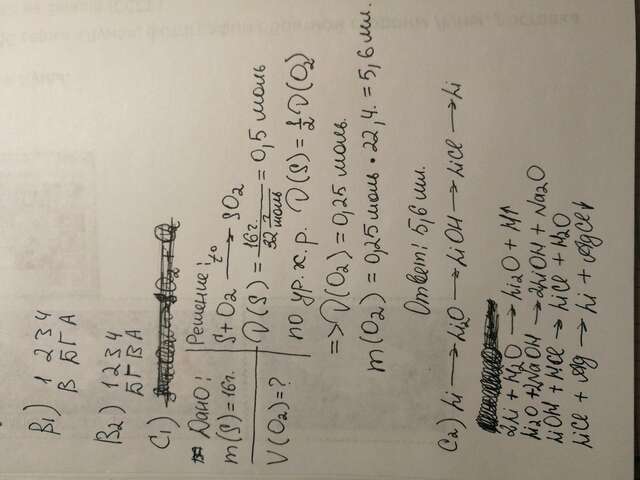 В1) 1 2 3 4
В Б Г А
В2) 1 2 3 4
Б Г В А
С1)
Дано:
m(S)=16г.
V(O2)=?
Решение:
S+O2 t° → SO2
ν(S) = 16г. / 32 г/моль = 0,5 моль
по ур. х. р. ν(S) = 1/2 ν(O2)
=> ν(O2) = 0,25 моль.
m(O2) = 0,25 моль · 22,4. = 5,6 мл.
Ответ: 5,6 мл.
С2) Li → Li2O → LiOH → LiCl → Li
2Li + H2O → Li2O + H↑
Li2O + 2NaOH → 2LiOH + Na2O
LiOH + HCl → LiCl + H2O
LiCl + Ag → Li + AgCl↓